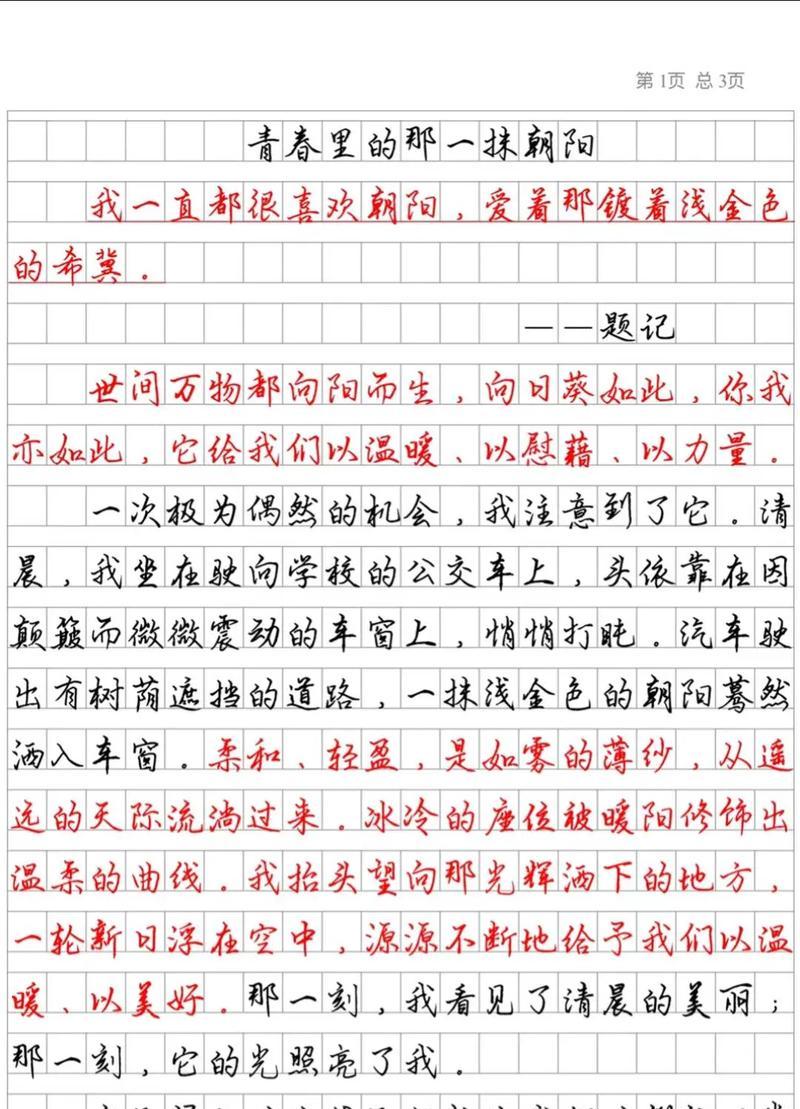 第1页 总3页
青春里的那一抹朝阳
我一直都很喜欢朝阳，爱着那镀着浅金色
的希冀。
——题记
世间万物都向阳而生，向日葵如此，你我
亦如此，它给我们以温暖、以慰藉、以力量。
一次极为偶然的机会，我注意到了它。清
晨，我坐在驶向学校的公交车上，头依靠在因
颠簸而微微震动的车窗上，悄悄打盹。汽车驶
出有树荫遮挡的道路，一抹浅金色的朝阳蓦然
洒入车窗。柔和、轻盈，是如雾的薄纱，从遥
远的天际流淌过来。冰冷的座位被暖阳修饰出
温柔的曲线。我抬头望向那光辉洒下的地方，
一轮新日浮在空中，源源不断地给予我们以温
暖、以美好。那一刻，我看见了清晨的美丽；
那一刻，它的光照亮了我。